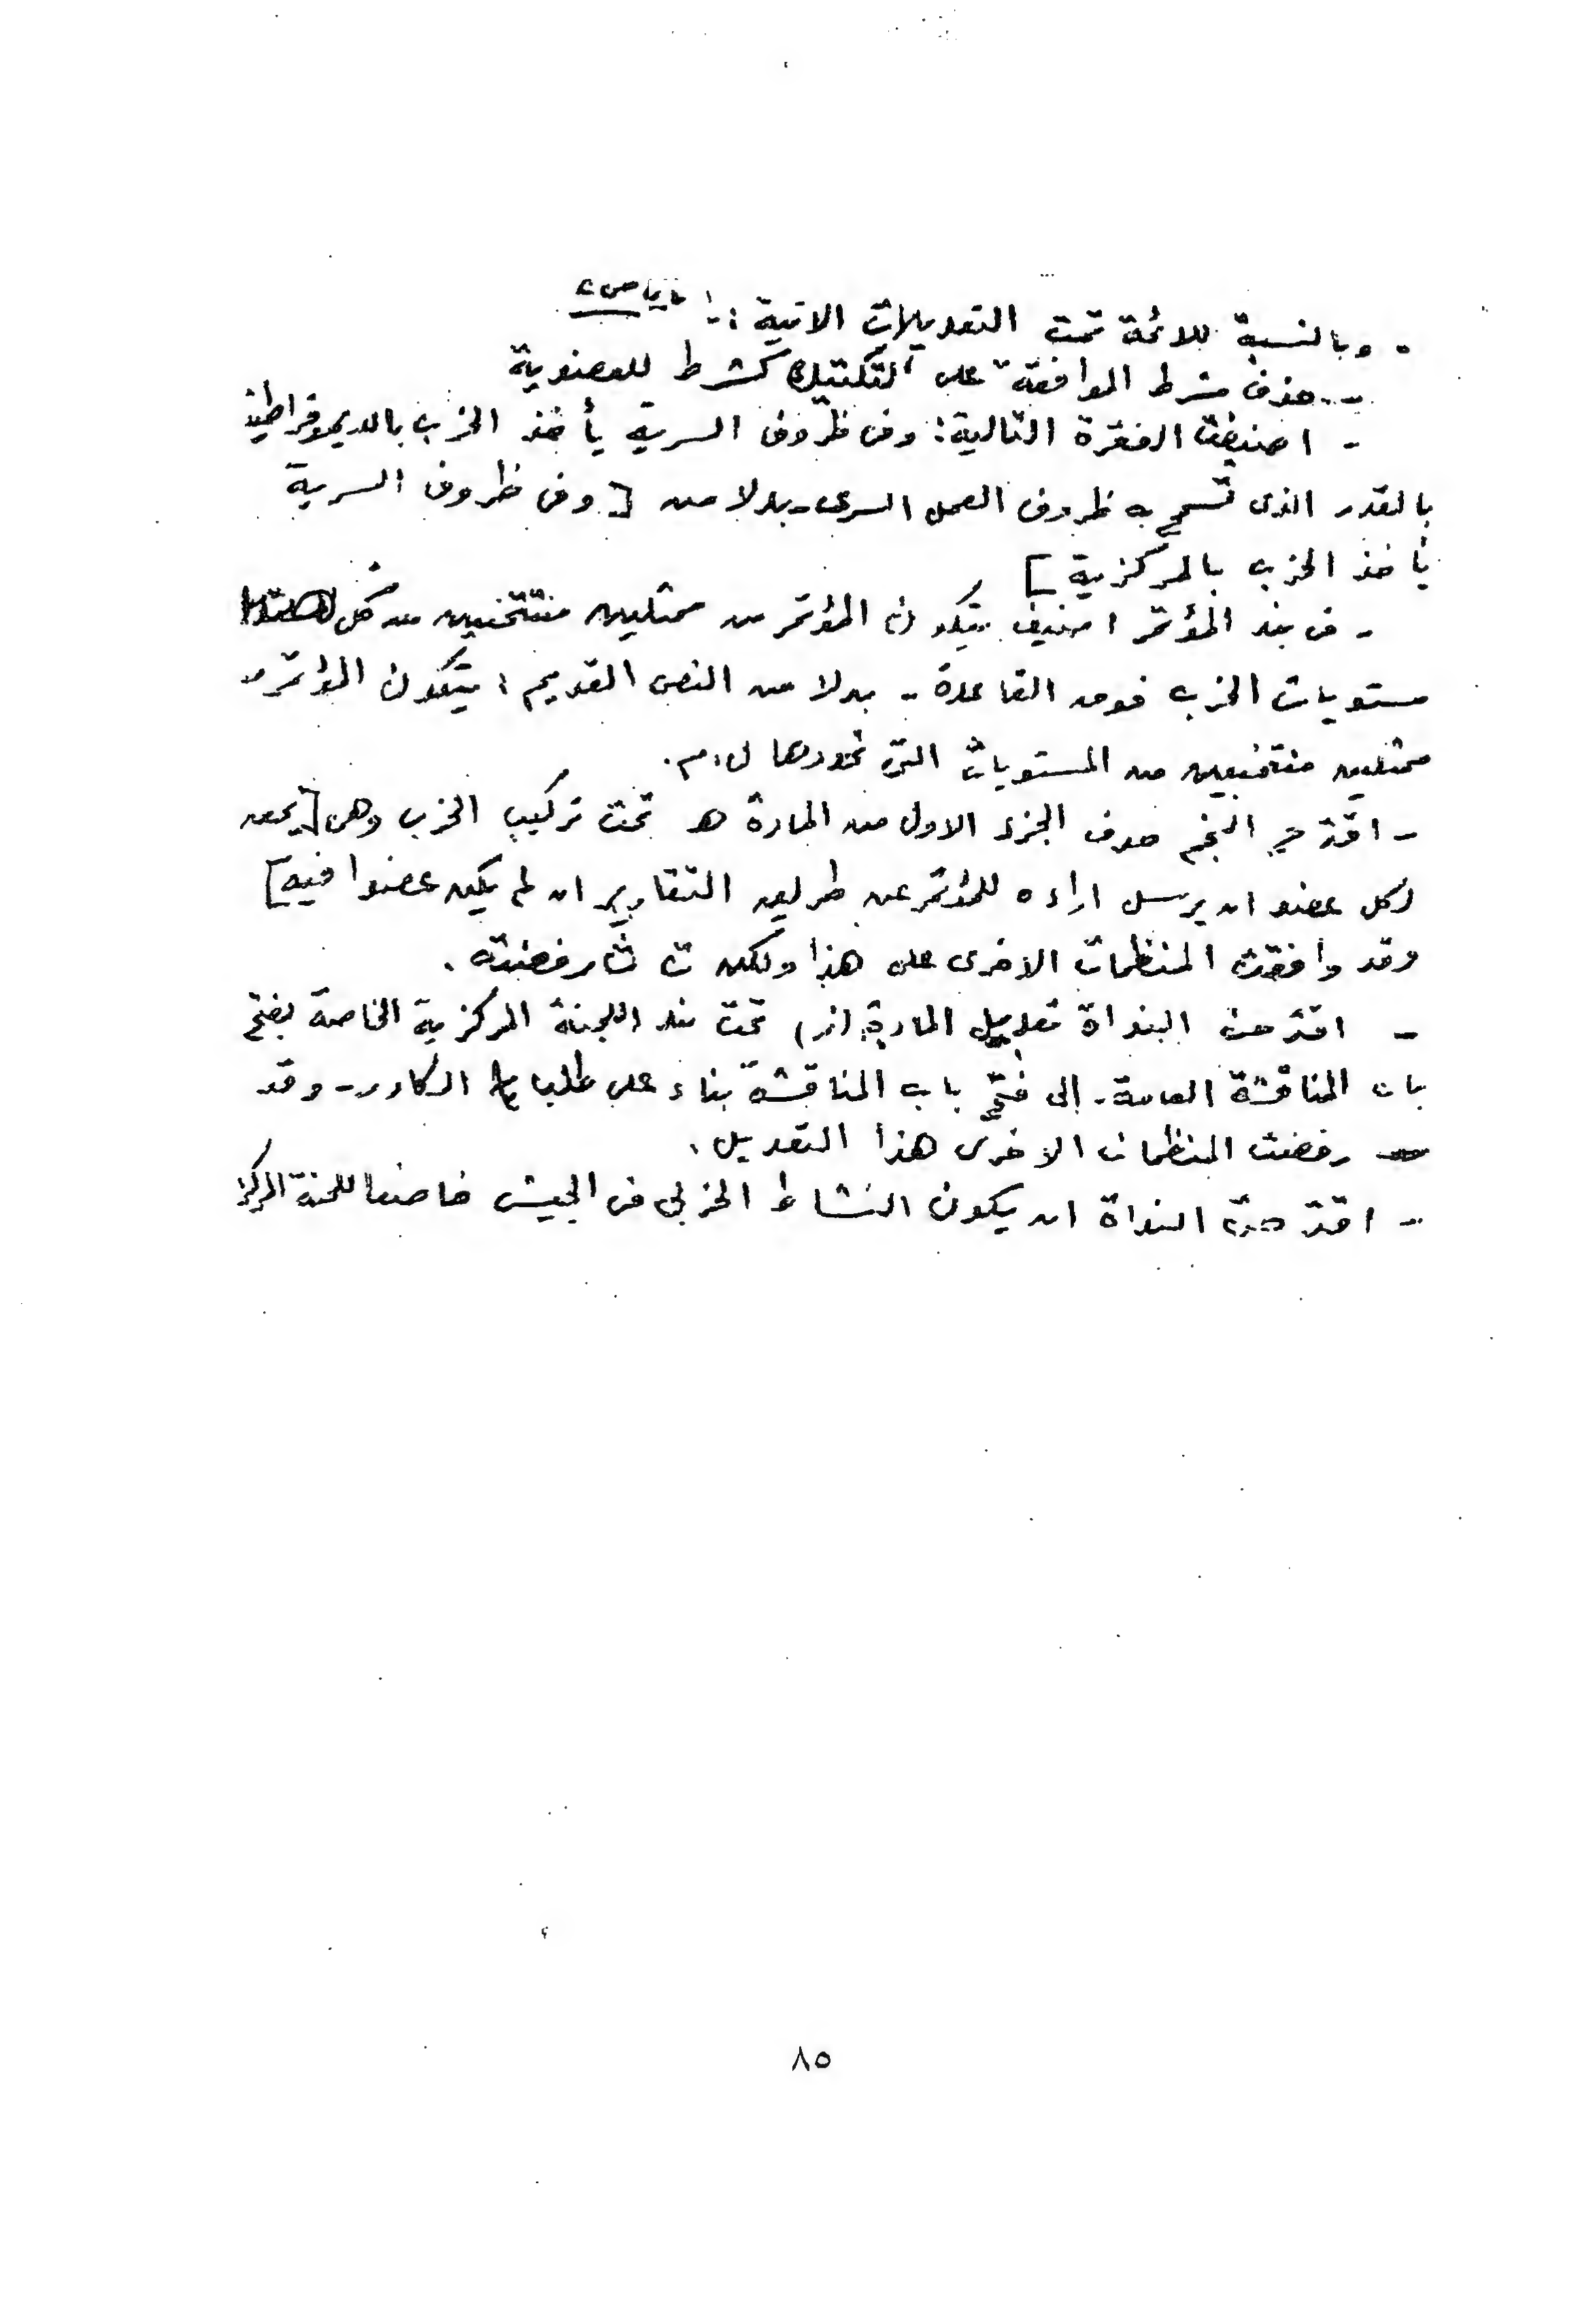 - وبالنسبة للائحة تمت التعديلات الاتية :-
- حذف شرط الموافقة على "التكتيك" كشرط للعضوية
- اضيفت الفقرة التالية: وفى ظروف السرية يأخذ الحزب بالديموقراطية
بالقدر الذى تسمح به ظروف العمل السرى - بدلا من [ وفى ظروف السرية
يأخذ الحزب بالمركزية ]
- فى بند المؤتمر اضيف يتكون المؤتمر من ممثلين منتخبين من كل
مستويات الحزب فوق القاعدة - بدلا من النص القديم : يتكون المؤتمر من
ممثلين منتخبين من المستويات التى تحددها ل.م.
- اقترح النجم حذف الجزء الاول من المادة هـ تحت تركيب الحزب وهى [ يحق
لكل عضو ان يرسل اراءه للمؤتمر عن طريق التقارير ان لم يكن عضوا فيه ]
وقد وافقت المنظمات الاخرى على هذا ولكن ت ث رفضته .
- اقترحت النواة تعديل المادة (ز) تحت بند اللجنة المركزية الخاصة بفتح
باب المناقشة العامة - إلى فتح باب المناقشة بناء على طلب الكادر - وقد
رفضت المنظمات الاخرى هذا التعديل .
- اقترحت النواة ان يكون النشاط الحزبى فى الجيش خاضعا للجنة المركزية
٨٥